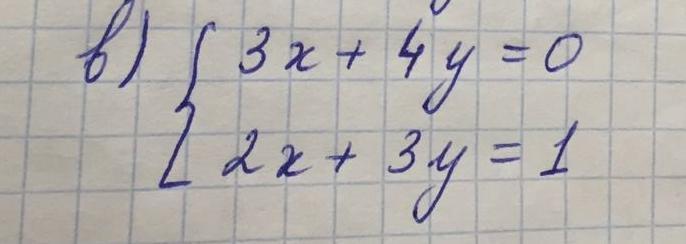 в) { 3x + 4y = 0
2x + 3y = 1